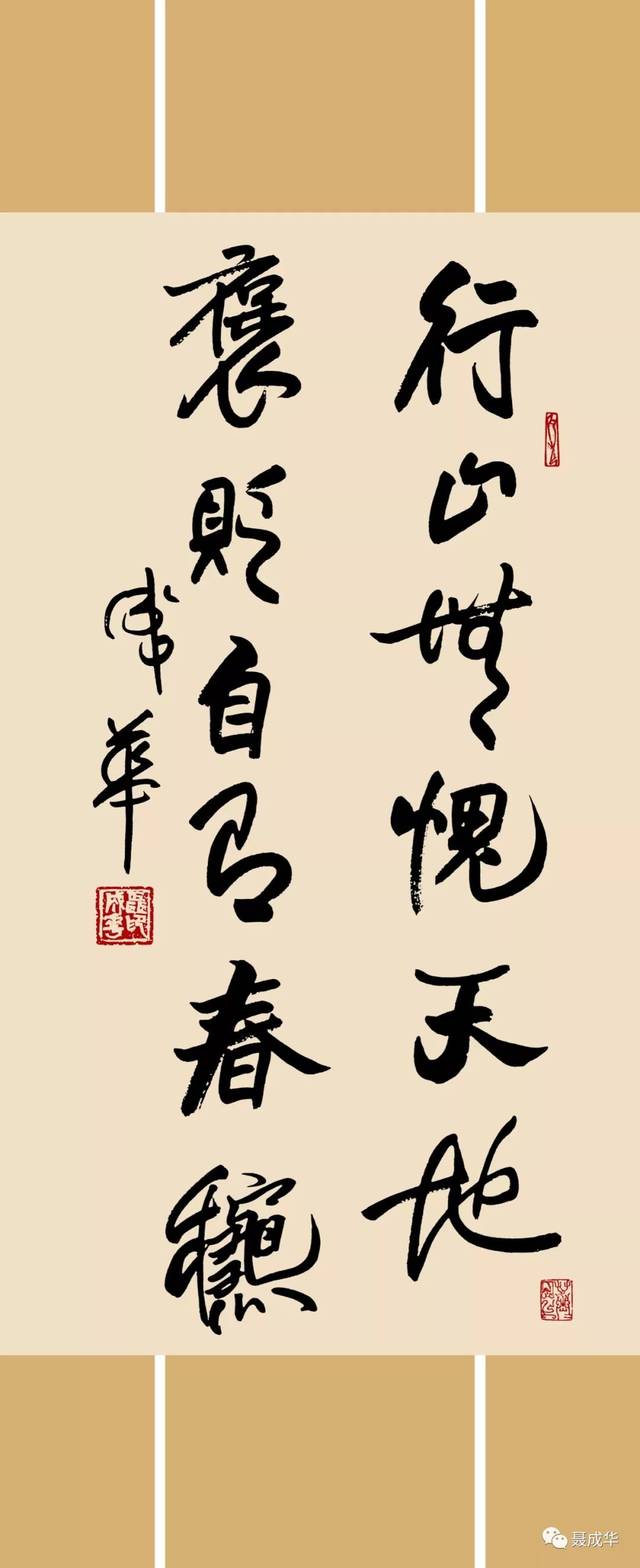 行止無愧天地
褒貶自有春龝
成華
聂成华